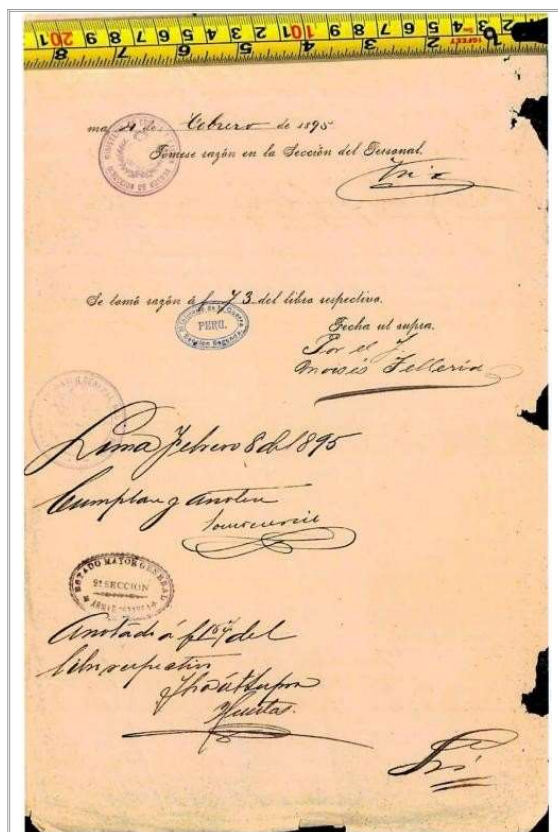 ma, de Febrero de 1895
Tómese razón en la Sección del Personal.
Se tomó razón á f 73 del libro respectivo.
PERÚ.
Sección Segunda
Fecha ut supra.
Por el J.
Moisés Tellería
Lima Febrero 8 de 1895
Cumplase y anótese
ESTADO MAYOR GENERAL
2ª SECCION
Anotado á f del
libro respectivo
Fha út supra
Huertas.